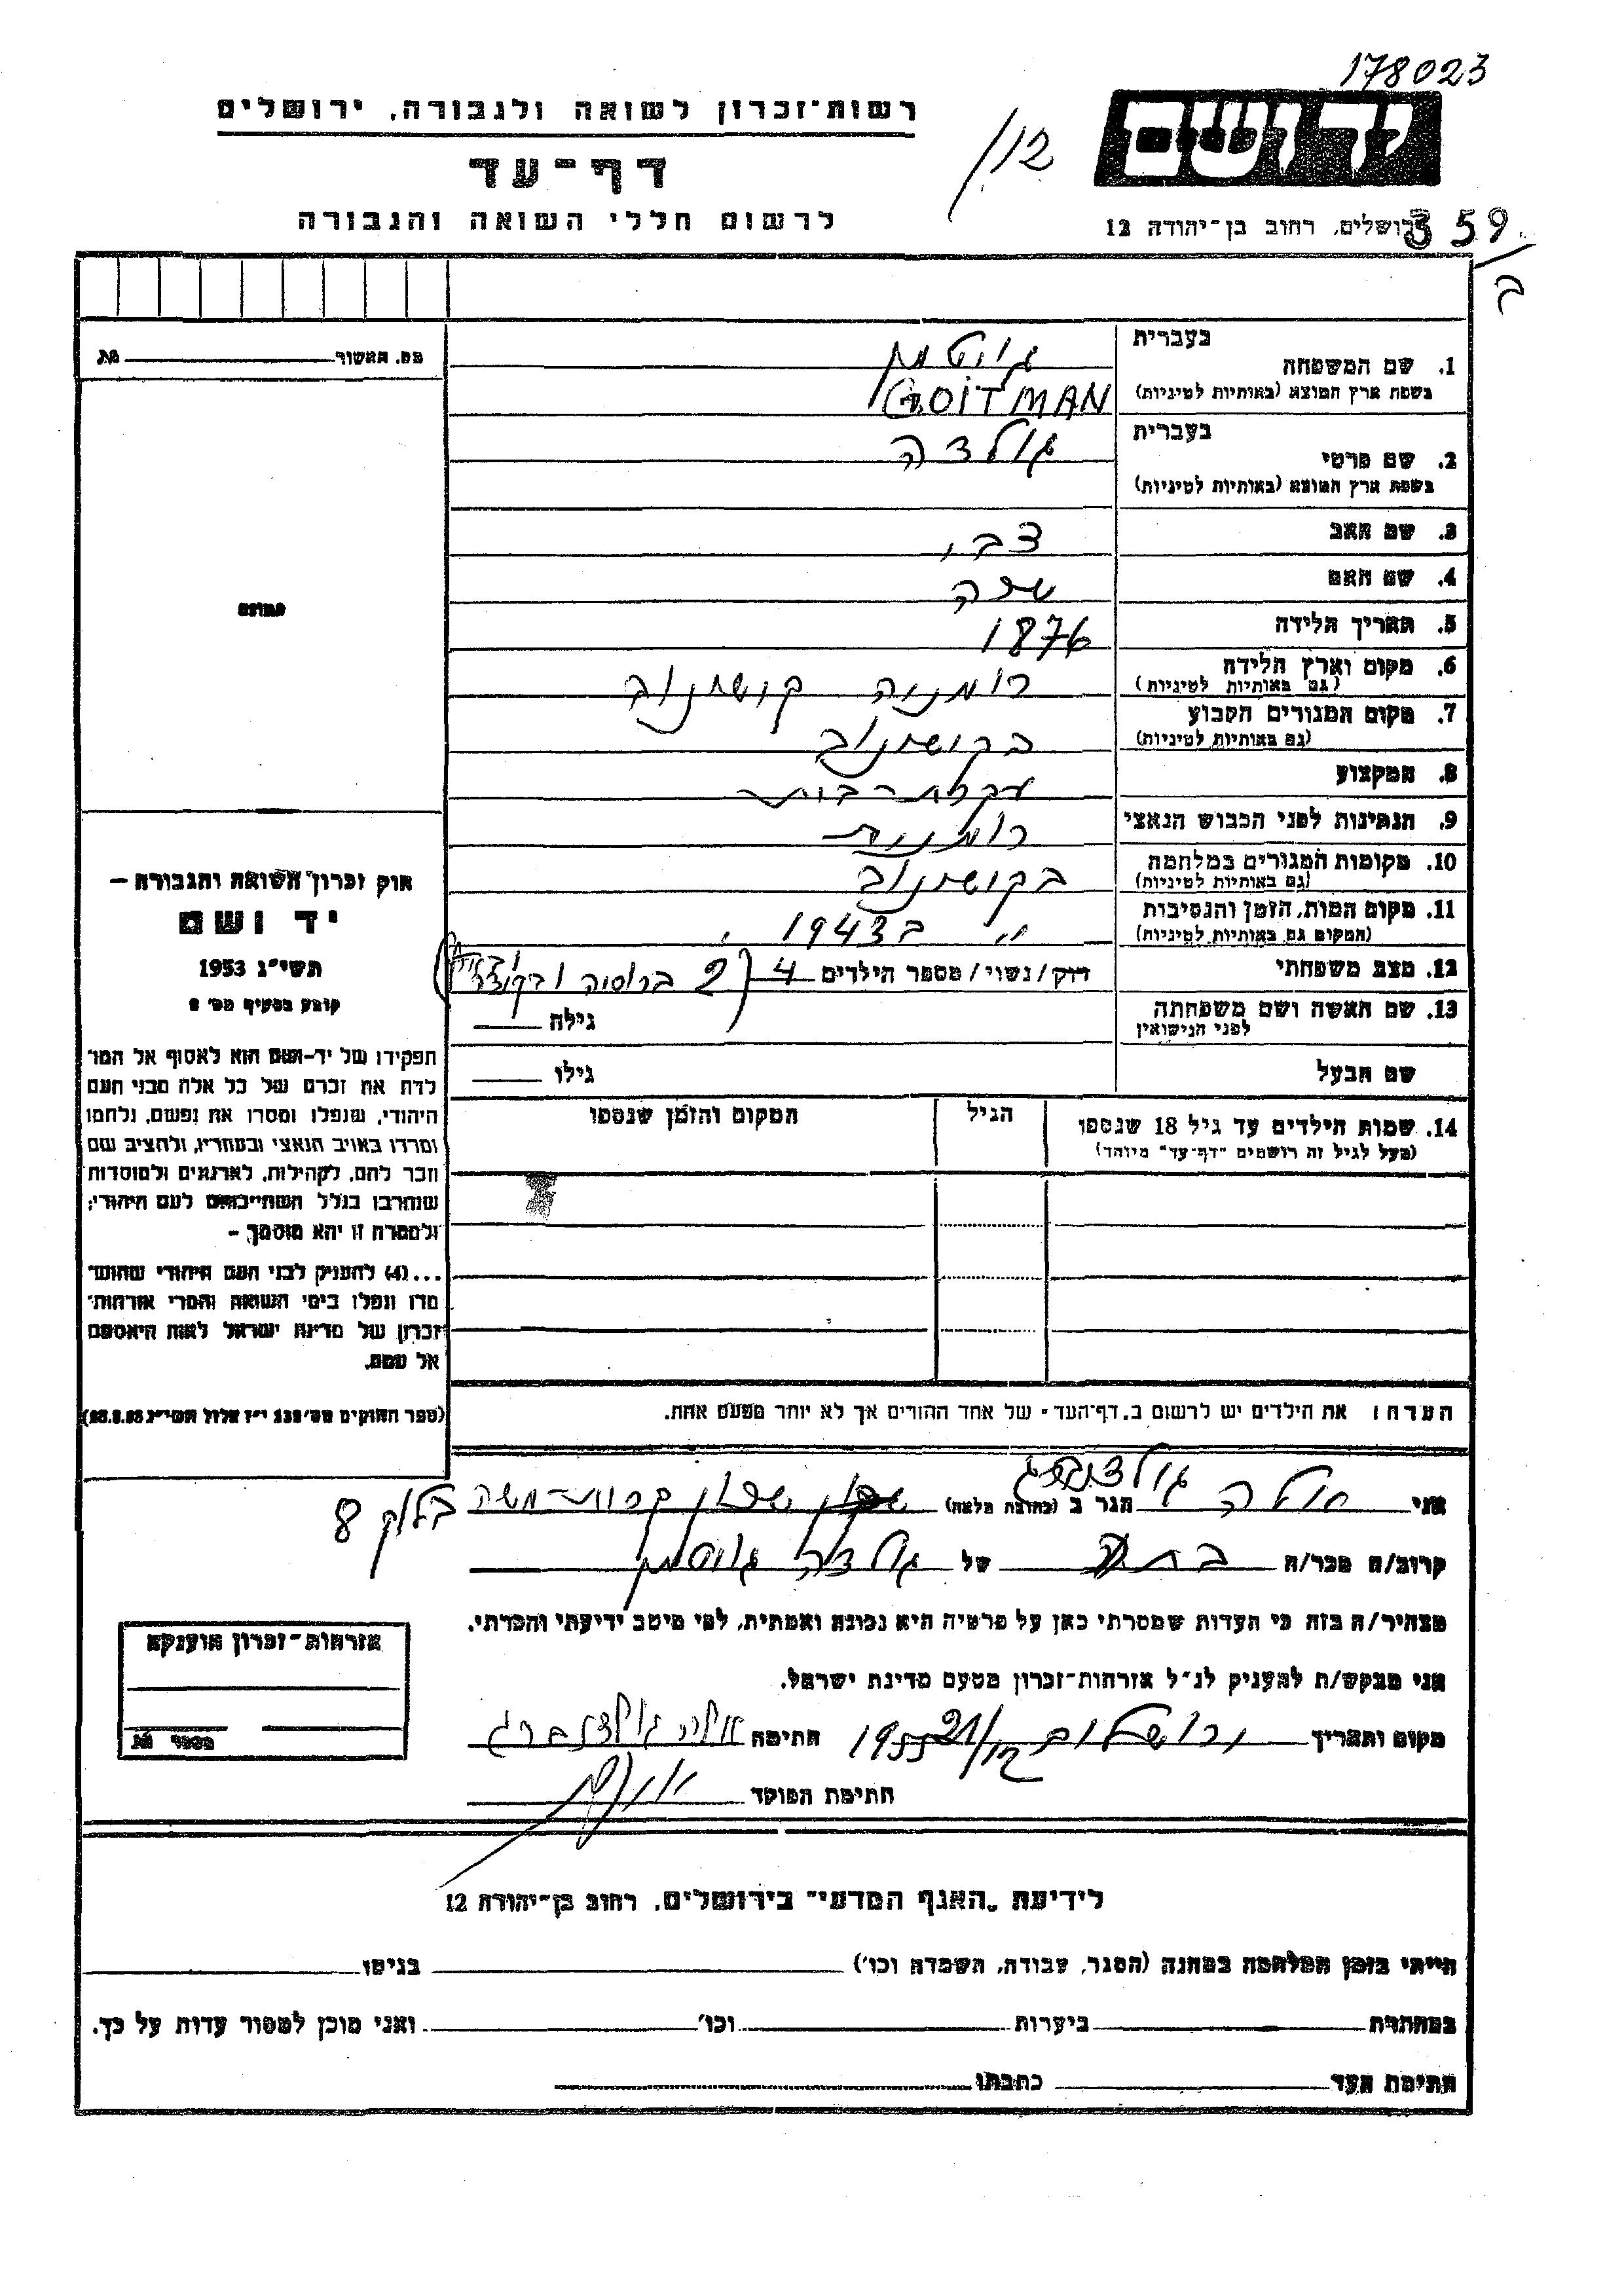 178023
רשות-זכרון לשואה ולגבורה, ירושלים
ידושם
12/
דף-עד
לרשום חללי השואה והגבורה
ירושלים, רחוב בן-יהודה 12
359
ב
מס. האשור
1. שם המשפחה בעברית גויטמן
בשפת ארץ המוצא (באותיות לטיניות) GOITMAN
2. שם פרטי בעברית גולדה
בשפת ארץ המוצא (באותיות לטיניות)
3. שם האב צבי
4. שם האם שרה
5. תאריך הלידה 1876
6. מקום וארץ הלידה רומניה קושנוב
(גם באותיות לטיניות)
7. מקום המגורים הקבוע בקושנוב
(גם באותיות לטיניות)
8. המקצוע עקרת-בית
9. הנתינות לפני הכבוש הנאצי רומנית
10. מקומות המגורים במלחמה בקושנוב
(גם באותיות לטיניות)
11. מקום המות, הזמן והנסיבות " ב 1943
(המקום גם באותיות לטיניות)
12. מצב משפחתי רוק/נשוי/מספר הילדים 4 (2 ברוסיה
13. שם האשה ושם משפחתה גילה
לפני הנישואין
שם הבעל גילו
14. שמות הילדים עד גיל 18 שנספו הגיל המקום והזמן שנספו
(מעל לגיל זה רושמים "דף-עד" מיוחד)
הערה: את הילדים יש לרשום ב"דף-העד" של אחד ההורים אך לא יותר מפעם אחת.
תמונה
חוק זכרון השואה והגבורה –
יד ושם
תשי"ג 1953
קובע בסעיף מס' 2
תפקידו של יד-ושם הוא לאסוף אל המו־
לדת את זכרם של כל אלה מבני העם
היהודי, שנפלו ומסרו את נפשם, נלחמו
ומרדו באויב הנאצי ובעוזריו, ולהציב שם
וזכר להם, לקהילות, לארגונים ולמוסדות
שנחרבו בגלל השתייכותם לעם היהודי;
ולמטרה זו יהא מוסמך –
...(4) להעניק לבני העם היהודי שהוש־
מדו ונפלו בימי השואה והמרי אזרחות־
זכרון של מדינת ישראל לאות היאספם
אל עמם.
(ספר החוקים מס' 132 י"ז אלול תשי"ג 28.8.53)
אני אלה גולדנברג הגר ב (כתובת מלאה) שכון בלוק 8
קרוב/ה מכר/ה בתה של גולדה גויטמן
מצהיר/ה בזה כי העדות שמסרתי כאן על פרטיה היא נכונה ואמתית, לפי מיטב ידיעתי והכרתי.
אני מבקש/ת להעניק לנ"ל אזרחות-זכרון מטעם מדינת ישראל.
מקום ותאריך ירושלים 21/12 1955 חתימה אלה גולדנברג
חתימת הפוקד
אזרחות-זכרון הוענקה
מספר
לידיעת "האגף המדעי" בירושלים, רחוב בן-יהודה 12
הייתי בזמן המלחמה במחנה (הסגר, עבודה, השמדה וכו') בגיטו
במחתרת ביערות וכו' ואני מוכן למסור עדות על כך.
חתימת העד כתבתו